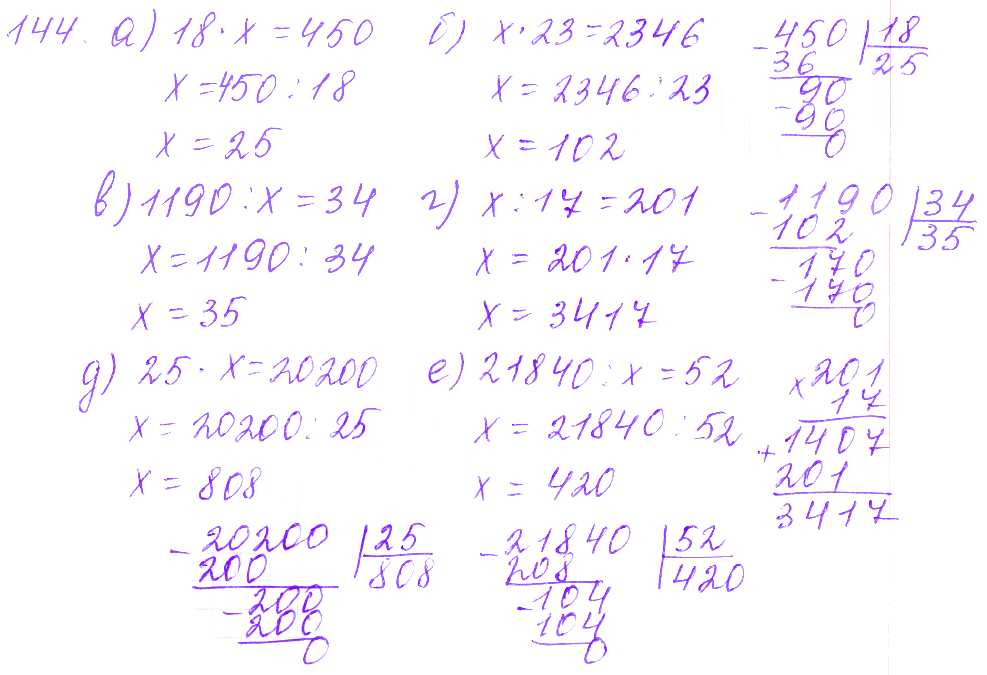 144. а) 18 · x = 450
x = 450 : 18
x = 25
б) x · 23 = 2346
x = 2346 : 23
x = 102
- 450 | 18
36 25
- 90
90
0
в) 1190 : x = 34
x = 1190 : 34
x = 35
г) x : 17 = 201
x = 201 · 17
x = 3417
- 1190 | 34
102 35
- 170
170
0
д) 25 · x = 20200
x = 20200 : 25
x = 808
е) 21840 : x = 52
x = 21840 : 52
x = 420
x 201
17
+ 1407
201
3417
- 20200 | 25
200 808
- 200
200
0
- 21840 | 52
208 420
- 104
104
0